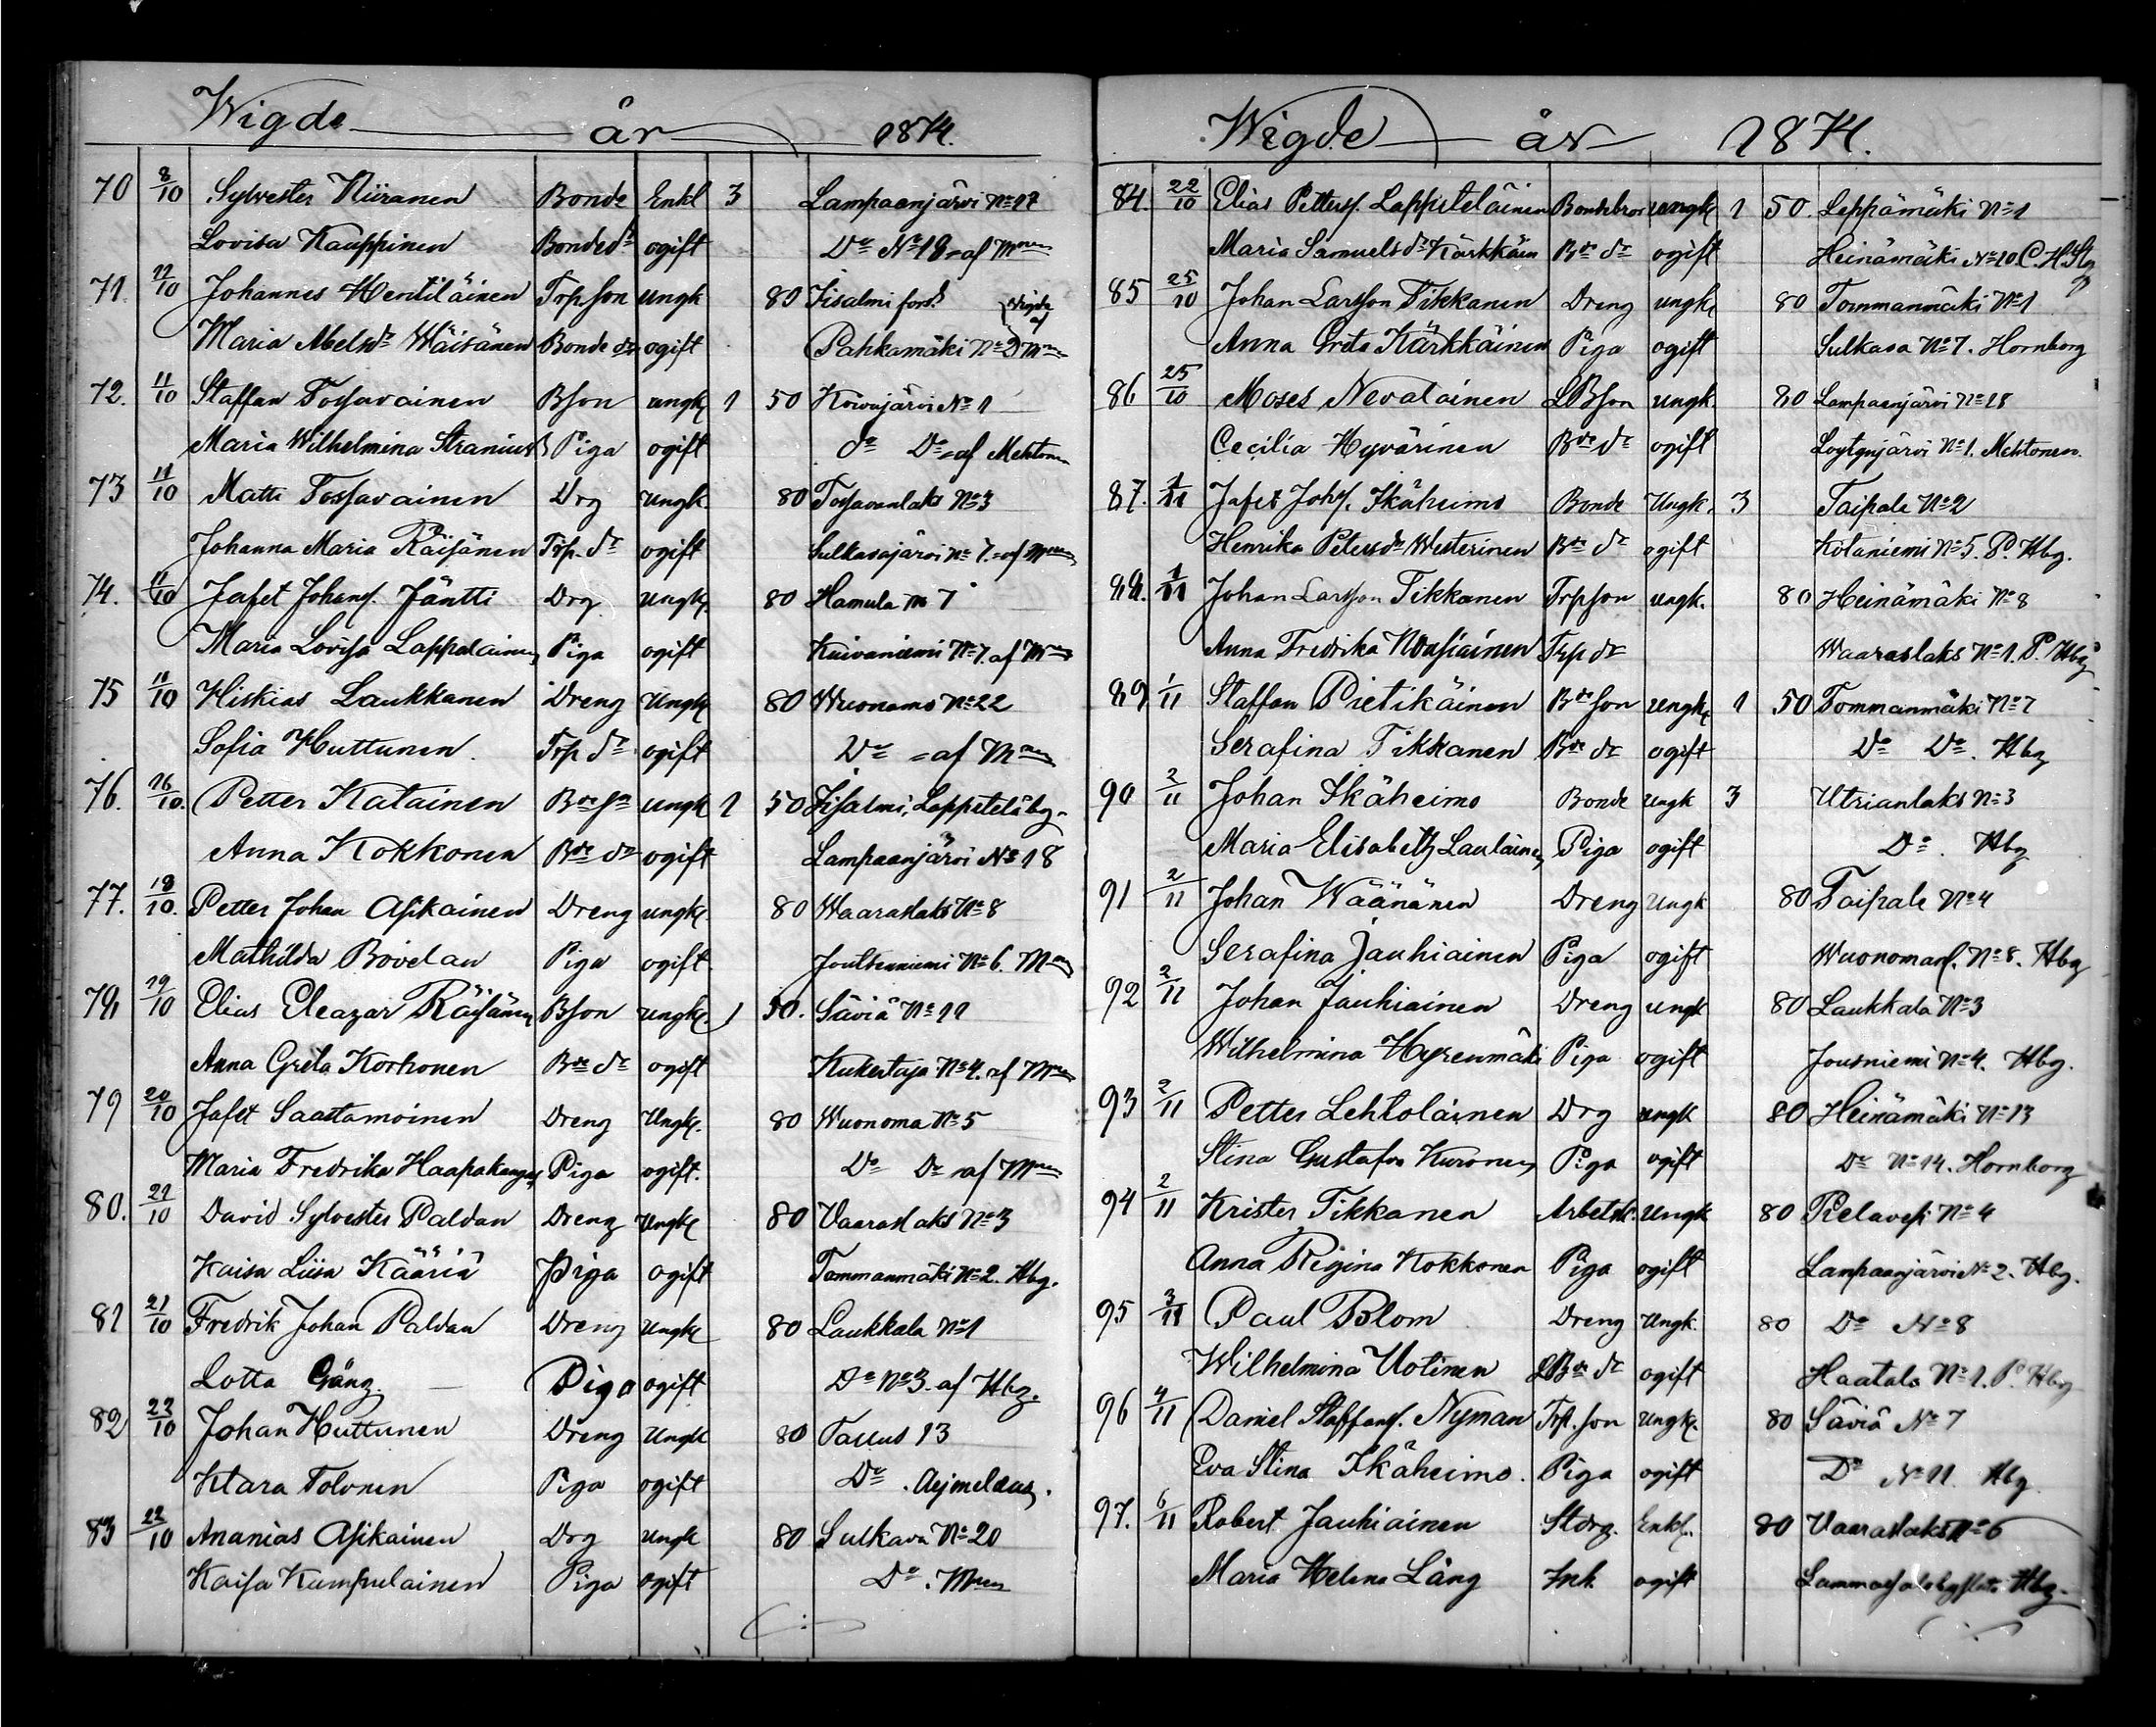 Wigde år 1874.
70 8/10 Sylvester Niiranen Bonde Enkl 3 Lampaanjärvi No 17
Lovisa Kauppinen Bonde dr ogift Do No 18 = af Mnen
71. 11/10 Johannes Hentiläinen Trpson ungk 80 Iisalmi förs. Wigda af
Maria Abelsdr Wäisänen Bonde dr ogift Pahkamäki No 2 Mnen
72. 11/10 Staffan Tossavainen Bson ungk 1 50 Koivujärvi No 1
Maria Wilhelmina Stranius Piga ogift do Do = af Mehtonen
73 11/10 Matti Tossavainen Drg ungk 80 Tossavanlaks No 3
Johanna Maria Räisänen Trp. dr ogift Sulkavajärvi No 7. = af Mnen
74. 11/10 Jafet Johans. Jäntti Drg ungk. 80 Hamula No 7
Maria Lovisa Lappalainen Piga ogift Kuivaniemi No 7. af Mnen
75 11/10 Hiskias Laukkanen Dreng Ungk 80 Wuonamo No 22
Sofia Huttunen Trp dr ogift Do = af Mnen
76. 16/10. Petter Katainen Bde son ungk 1 50 Iisalmi, Lappetelä by.
Anna Kokkonen Bde dr ogift Lampaanjärvi No 18
77. 18/10. Petter Johan Asikainen Dreng ungk. 80 Waaraslaks No 8
Mathilda Bovelan Piga ogift Joutsenniemi No 6. Mnen
78 19/10 Elias Eleazar Räisänen Bson ungk. 1 50. Säviä No 11
Anna Greta Korhonen Bde dr ogift Kukertaja No 4. af Mnen
79 20/10 Jafet Saastamoinen Dreng Ungk. 80 Wuonoma No 5
Maria Fredrika Haapakangas Piga ogift. Do Do = af Mnen
80. 21/10 David Sylvester Paldan Dreng Ungk 80 Vaaraslaks No 3
Kaisa Liisa Kääriä Piga ogift Tommanmäki No 2. Hbg.
81 21/10 Fredrik Johan Paldan Dreng ungk 80 Laukkala No 1
Lotta Gäng. Piga ogift Do No 3. af Hbg.
82 23/10 Johan Huttunen Dreng Ungk 80 Tallus 13
Klara Tolonen Piga ogift Do. Aejmelaeus.
83 22/10 Ananias Asikainen Drg Ungk 80 Sulkava No 20
Kaisa Kumpulainen Piga ogift Do. Mnen
Wigde år 1874.
84. 22/10 Elias Petters. Lappeteläinen Bondebror ungk 1 50 Leppämäki No 1
Maria Samuelsdr Kärkkäin Bde dr ogift Heinämäki No 10. C. H. Stg
85 25/10 Johan Larsson Tikkanen Dreng ungk 80 Tommanmäki No 1
Anna Greta Kärkkäinen Piga ogift Sulkava No 7. Hornborg
86 25/10 Moses Nevalainen LBson ungk. 80 Lampaanjärvi No 18
Cecilia Hyvärinen Bde dr ogift Löytynjärvi No 1. Mehtonen.
87. 1/11 Jafet Johs. Ikäheimo Bonde Ungk. 3 Taipale No 2
Henrika Petersdr Westerinen Bde dr ogift Kotaniemi No 5. P. Hbg.
88. 1/11 Johan Larsson Tikkanen Trpson ungk. 80 Heinämäki No 8
Anna Fredrika Nousiainen Trp dr Waaraslaks No 1. P. Hbg
89 1/11 Staffan Pietikäinen Bde son ungk 1 50 Tommanmäki No 7
Serafina Tikkanen Bde dr ogift Do Do. Hbg
90 2/11 Johan Ikäheimo Bonde ungk 3 Utrianlaks No 3
Maria Elisabeth Laulainen Piga ogift Do. Hbg
91 2/11 Johan Wäänänen Dreng Ungk 80 Taipale No 4
Serafina Jauhiainen Piga ogift Wuonoma No 8. Hbg
92 2/11 Johan Jauhiainen Dreng ungk 80 Laukkala No 3
Wilhelmina Hyrenmäki Piga ogift Jousniemi No 4. Hbg.
93 2/11 Petter Lehtolainen Drg ungk 80 Heinämäki No 13
Stina Gustafva Kuronen Piga ogift Do No 14. Hornborg
94 2/11 Krister Tikkanen Arbetsk. Ungk 80 Pielavesi No 4
Anna Regina Kokkonen Piga ogift Lampaanjärvi No 2. Hbg.
95 3/11 Paul Blom Dreng Ungk. 80 Do No 8
Wilhelmina Uotinen LBde dr ogift Haatala No 1. P. Hbg
96 4/11 Daniel Staffans. Nyman Trp. son ungk. 80 Säviä No 7
Eva Stina Ikäheimo. Piga ogift Do No 11 Hbg.
97. 6/11 Robert Jauhiainen Stdrg. Enkl. 80 Vaaraslaks No 6
Maria Helena Lång Inh. ogift Hbg.